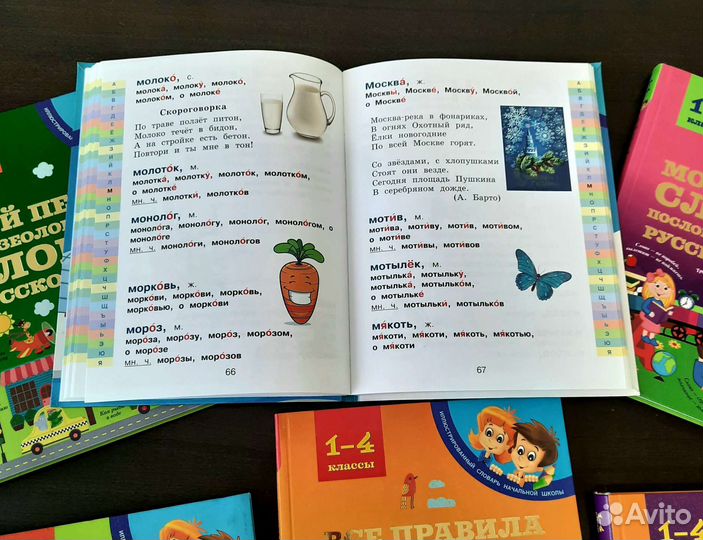 МОЛОКО́, с.
молока́, молоку́, молоко́,
молоко́м, о молоке́
Скороговорка
По траве ползёт питон,
Молоко течёт в бидон,
А на стройке есть бетон.
Повтори и ты мне в тон!
МОЛОТО́К, м.
молотка́, молотку́, молото́к, молотко́м,
о молотке́
мн. ч. молотки́, молотко́в
МОНОЛО́Г, м.
моноло́га, моноло́гу, моноло́г, моноло́гом, о
моноло́ге
мн. ч. моноло́ги, моноло́гов
МОРКО́ВЬ, ж.
морко́ви, морко́ви, морко́вь,
морко́вью, о морко́ви
МОРО́З, м.
моро́за, моро́зу, моро́з, моро́зом,
о моро́зе
мн. ч. моро́зы, моро́зов
66
МОСКВА́, ж.
Москвы́, Москве́, Москву́, Москво́й,
о Москве́
Москва-река в фонариках,
В огнях Охотный ряд,
Ёлки новогодние
По всей Москве горят.
Со звёздами, с хлопушками
Стоят они везде.
Сегодня площадь Пушкина
В серебряном дожде.
(А. Барто)
МОТИ́В, м.
моти́ва, моти́ву, моти́в, моти́вом,
о моти́ве
мн. ч. моти́вы, моти́вов
МОТЫЛЁК, м.
мотылька́, мотыльку́,
мотылька́, мотылько́м,
о мотыльке́
мн. ч. мотыльки́, мотылько́в
МЯ́КОТЬ, ж.
мя́коти, мя́коти, мя́коть, мя́котью,
о мя́коти
67
1–4
КЛАССЫ
ИЛЛЮСТРИРОВАННЫЙ СЛОВАРЬ НАЧАЛЬНОЙ ШКОЛЫ
ВСЕ ПРАВИЛА
1–4
Avito